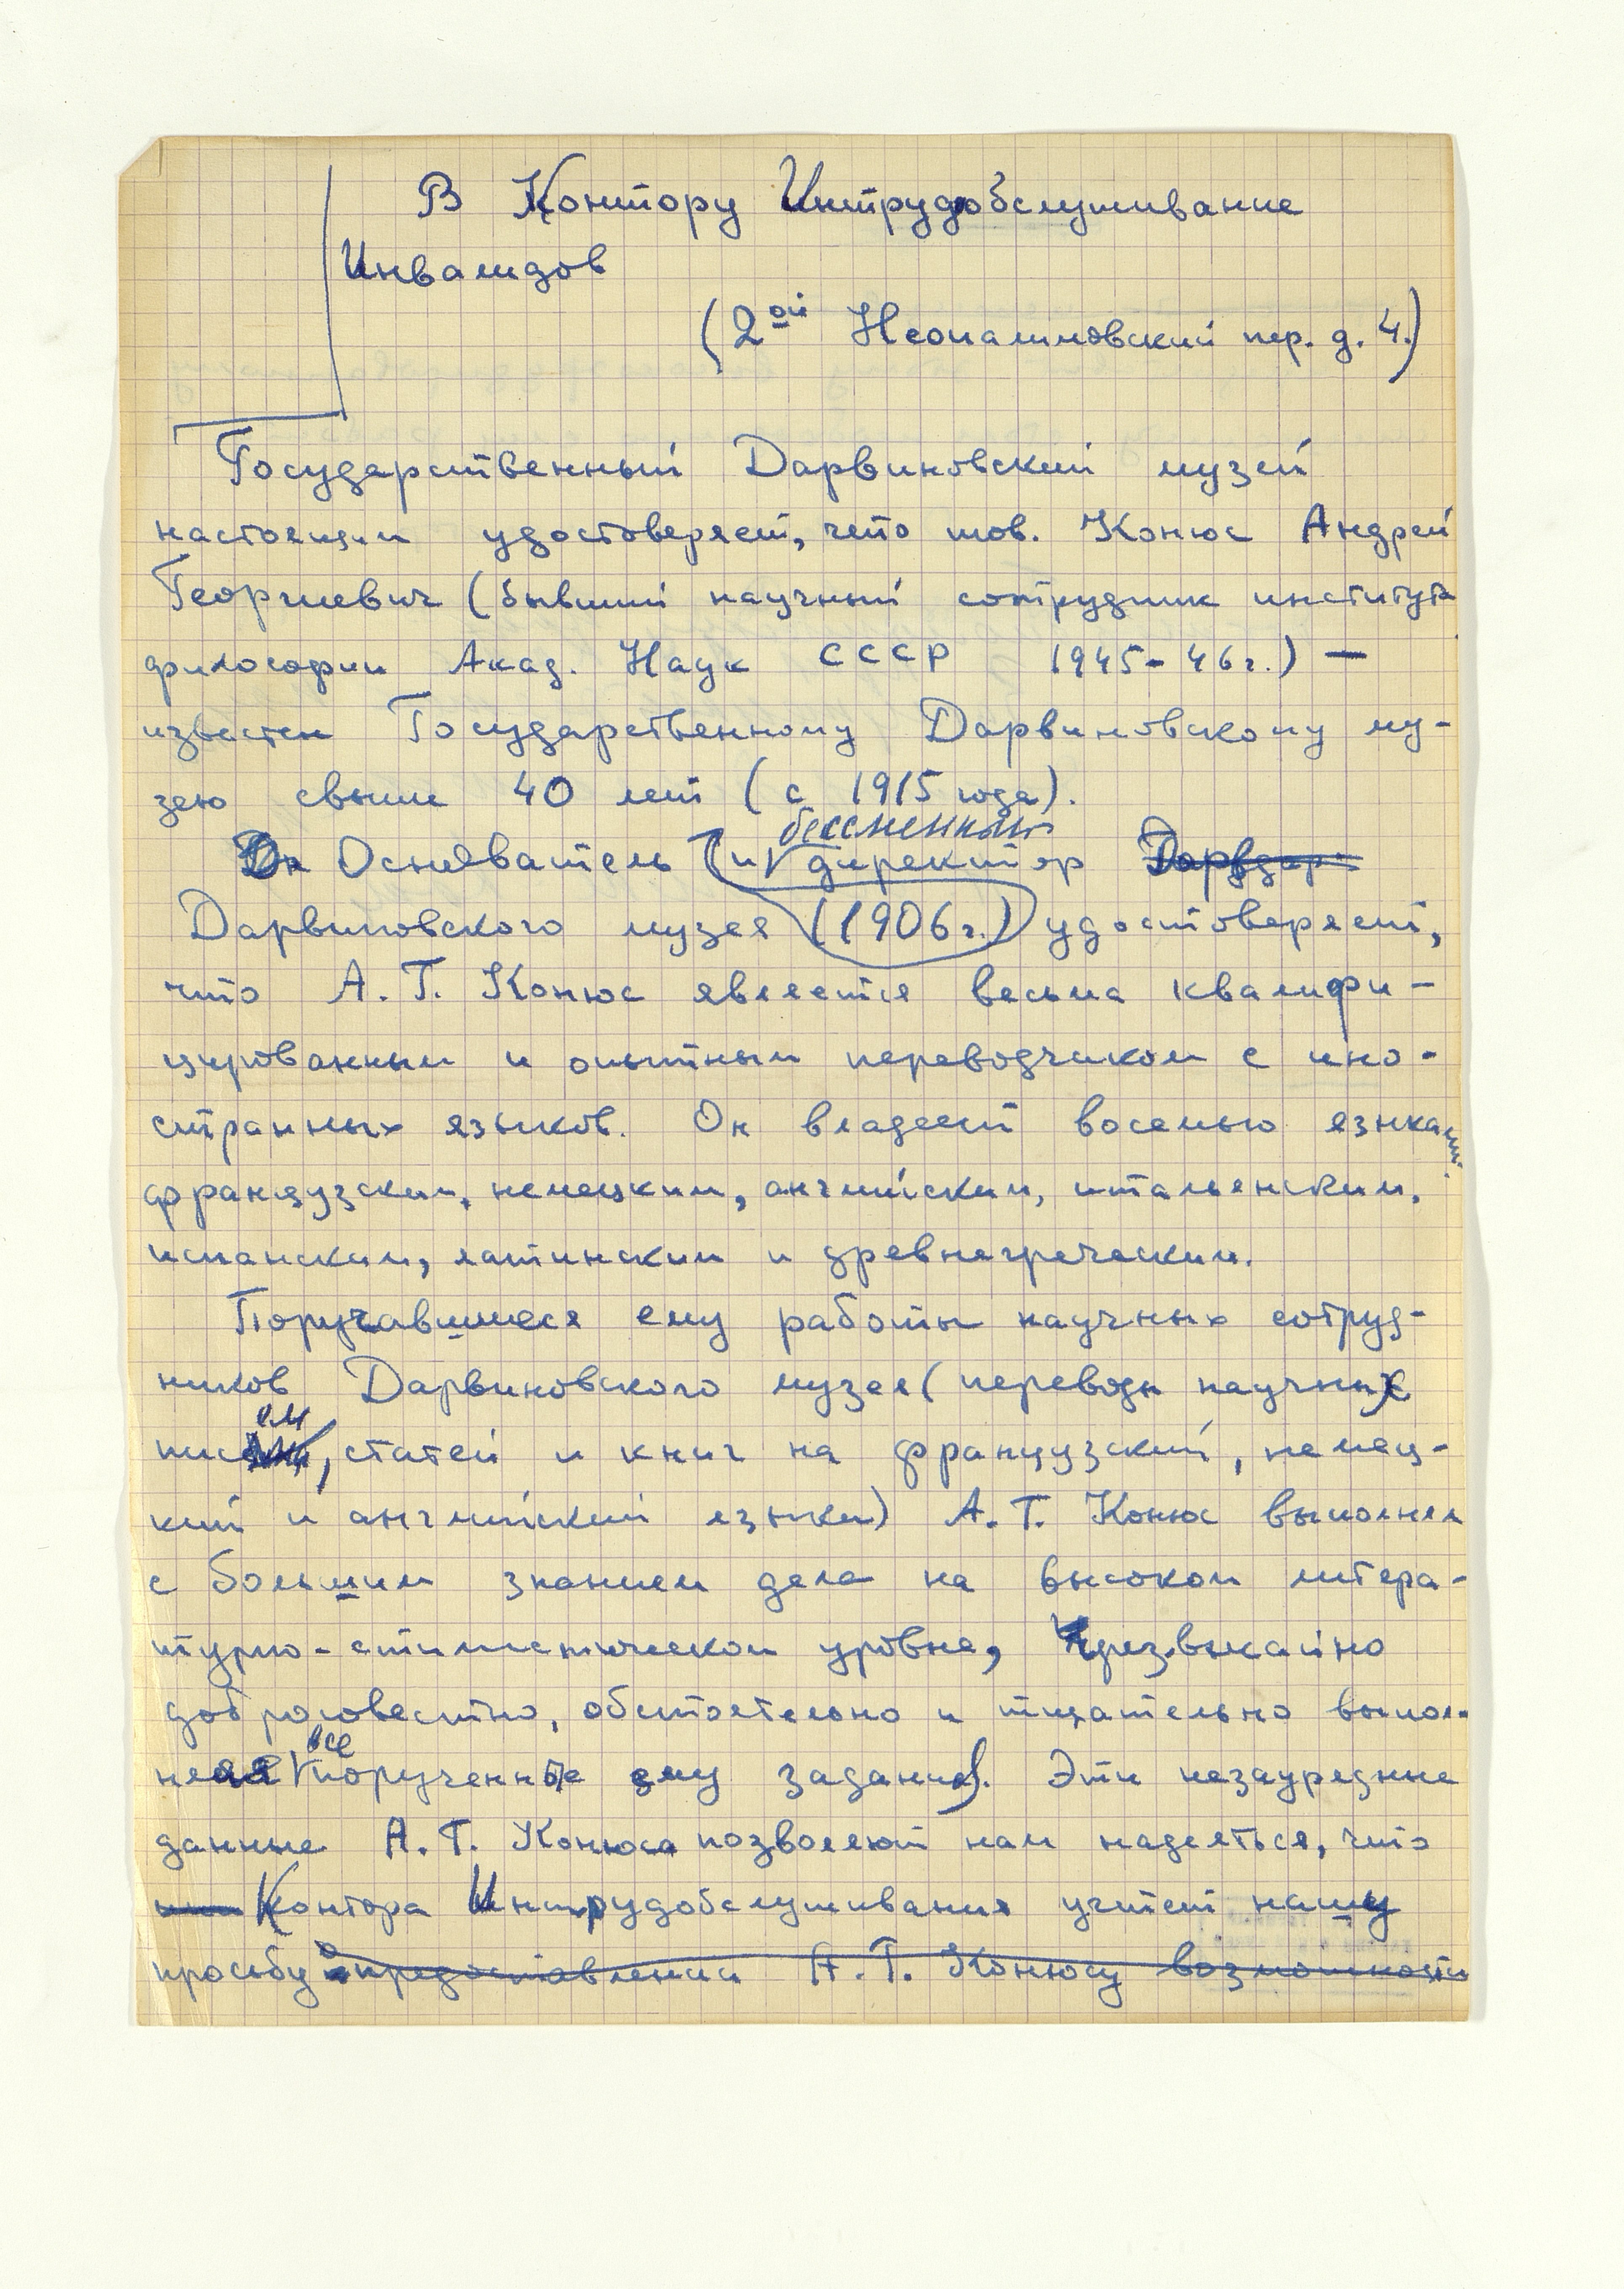 В Контору Интрудобслуживание
Инвалидов
(2ой Неопалимовский пер. д. 4.)
Государственный Дарвиновский музей
настоящим удостоверяет, что тов. Конюс Андрей
Георгиевич (бывший научный сотрудник института
философии Акад. Наук СССР 1945-46г.) —
известен Государственному Дарвиновскому му-
зею свыше 40 лет (с 1915 года).
бессменный
Он Основатель и директор
Дарвиновского музея (1906г.) удостоверяет,
что А. Г. Конюс является весьма квалифи-
цированным и опытным переводчиком с ино-
странных языков. Он владеет восемью языками
французским, немецким, английским, итальянским,
испанским, латинским и древнегреческим.
Поручавшиеся ему работы научных сотруд-
ников Дарвиновского музея (переводы научных
ем
писем, статей и книг на французский, немец-
кий и английский языки) А. Г. Конюс выполнял
с большим знанием дела на высоком литера-
турно-стилистическом уровне, чрезвычайно
добросовестно, обстоятельно и тщательно выпол-
все
няя порученные ему задания. Эти незаурядные
данные А. Г. Конюса позволяют нам надеяться, что
Контора Интрудобслуживания учтет нашу
просьбу о предоставлении А. Г. Конюсу возможности